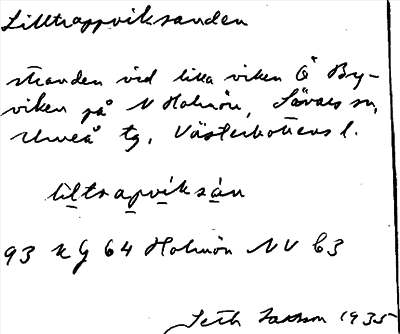 Lilltrappviksanden
stranden vid lilla viken Ö By-
viken på N Holmön, Sävars sn,
Umeå tg, Västerbottens l.
liltrapviksán
93 K g 64 Holmön NV b3
Seth 1935